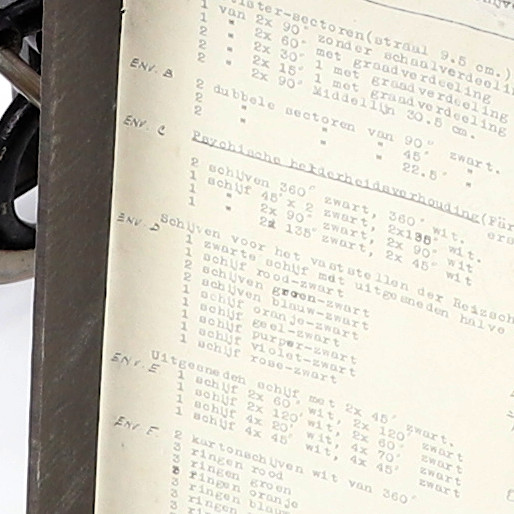 later-sectoren(straal 9.5 cm.)
1 van 2x 90° zonder schaalverdeeli
1 " 2x 60° met graadverdeeling
2 " 2x 30° 1 met graadverdeeling
2 " 2x 15° 1 met graadverdeeling
2 2x 90° Middellijn 30.5 cm.
ENV. B
2 dubbele sectoren van 90° zwart.
2 " " " 45° "
2 " " " 22.5° "
ENV. C
Psychische helderheidsverhouding(Für
2 schijven 360° zwart, 360° wit.
1 schijf 45°x 2 zwart, 2x135° wit.
1 " 2x 90° zwart, 2x 90° wit
1 " 2x 135° zwart, 2x 45° wit
ENV. D
Schijven voor het vaststellen der Reizsch
1 zwarte schijf mdt uitgesneden halve
1 schijf rood-zwart
2 schijven groen-zwart
2 schijven blauw-zwart
1 schijf oranje-zwart
1 schijf geel-zwart
1 schijf purper-zwart
1 schijf violet-zwart
1 schijf rose-zwart
ENV. E
Uitgesneden schijf met 2x 45° zwart.
1 schijf 2x 60° wit, 2x 120° zwart
1 schijf 2x 120° wit, 2x 60° zwart
1 schijf 4x 20° wit, 4x 70° zwart
1 schijf 4x 45° wit, 4x 45° zwart
ENV. F.
2 kartonschijven wit van 360°
3 ringen rood
3 ringen groen
3 ringen oranje
3 ringen blauw